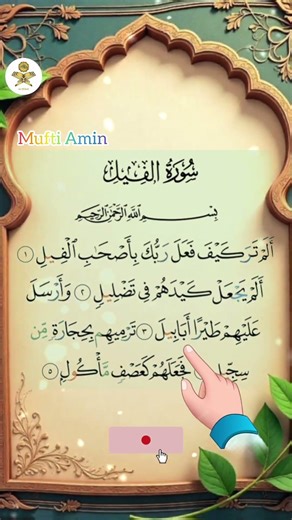 Mufti Amin
سُورَةُ الفِيلِ
بِسْمِ اللَّهِ الرَّحْمَٰنِ الرَّحِيمِ
أَلَمْ تَرَ كَيْفَ فَعَلَ رَبُّكَ بِأَصْحَابِ الْفِيلِ ۝١
أَلَمْ يَجْعَلْ كَيْدَهُمْ فِي تَضْلِيلٍ ۝٢ وَأَرْسَلَ
عَلَيْهِمْ طَيْرًا أَبَابِيلَ ۝٣ تَرْمِيهِم بِحِجَارَةٍ مِّن
فَجَعَلَهُمْ كَعَصْفٍ مَّأْكُولٍ ۝٥